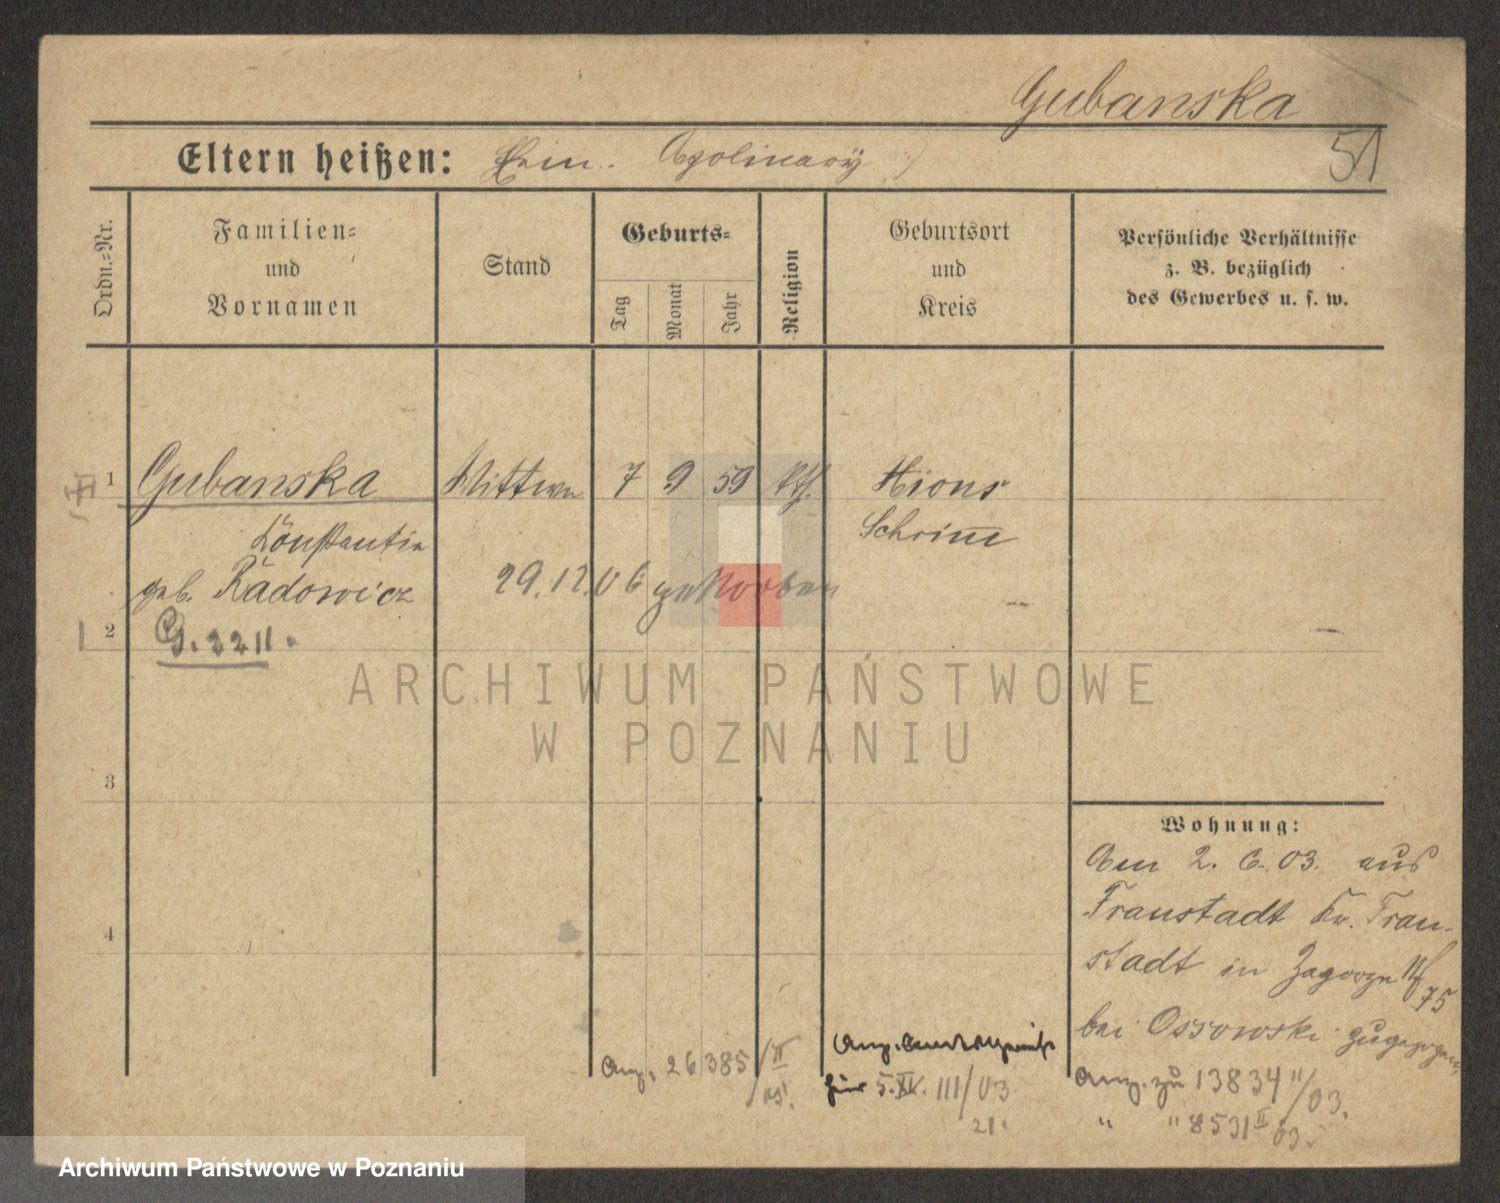 Gubanska
51
Eltern heißen: Apolinary
Ordn.=Nr.
Familien=
und
Vornamen
Stand
Geburts=
Tag
Monat
Jahr
Religion
Geburtsort
und
Kreis
Persönliche Verhältnisse
z. B. bezüglich
des Gewerbes u. s. w.
1 Gubanska Wittwe 7 9 59 kth. Xions
Konstantin Schrimm
geb. Radowicz 29.12.06 gestorben
2 G. 2211.
ARCHIWUM PAŃSTWOWE
W POZNANIU
3
4
Wohnung:
Am 2. 6. 03. aus
Fraustadt Kr. Frau-
stadt in Zagorze 11/
75
bei Ossowski zugezogen
Anz. 26385/II
05.
für 5. IV. III/03
21.
Anz. zu 13834 II/03.
" " 8531 II 03.
Archiwum Państwowe w Poznaniu